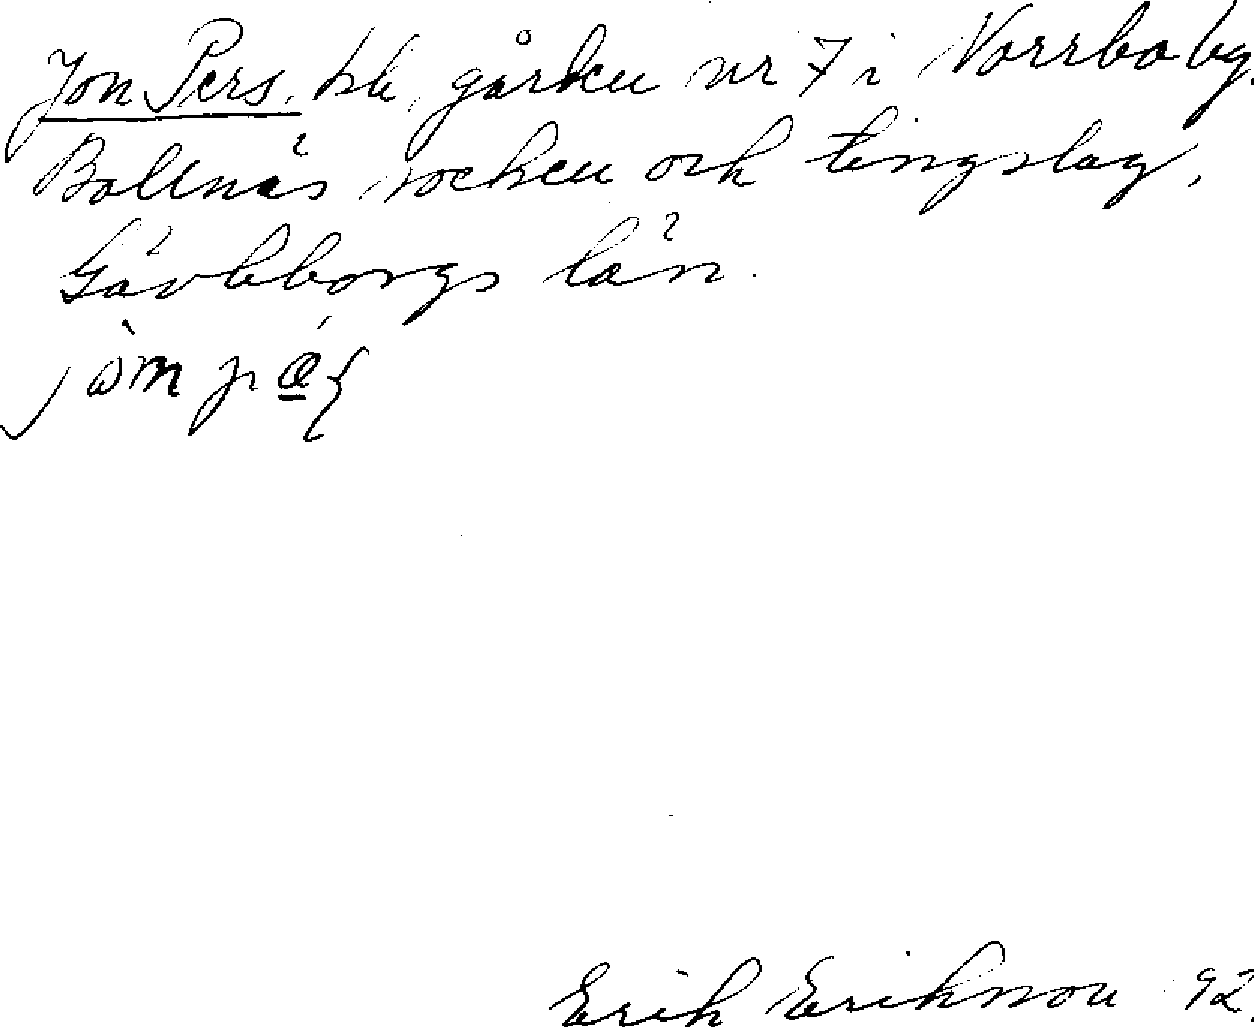 Jon Pers, bb, gården nr 7 i Norrbo by.
Bollnäs socken och tingslag,
Gävleborgs län.
Erik Eriksson 92